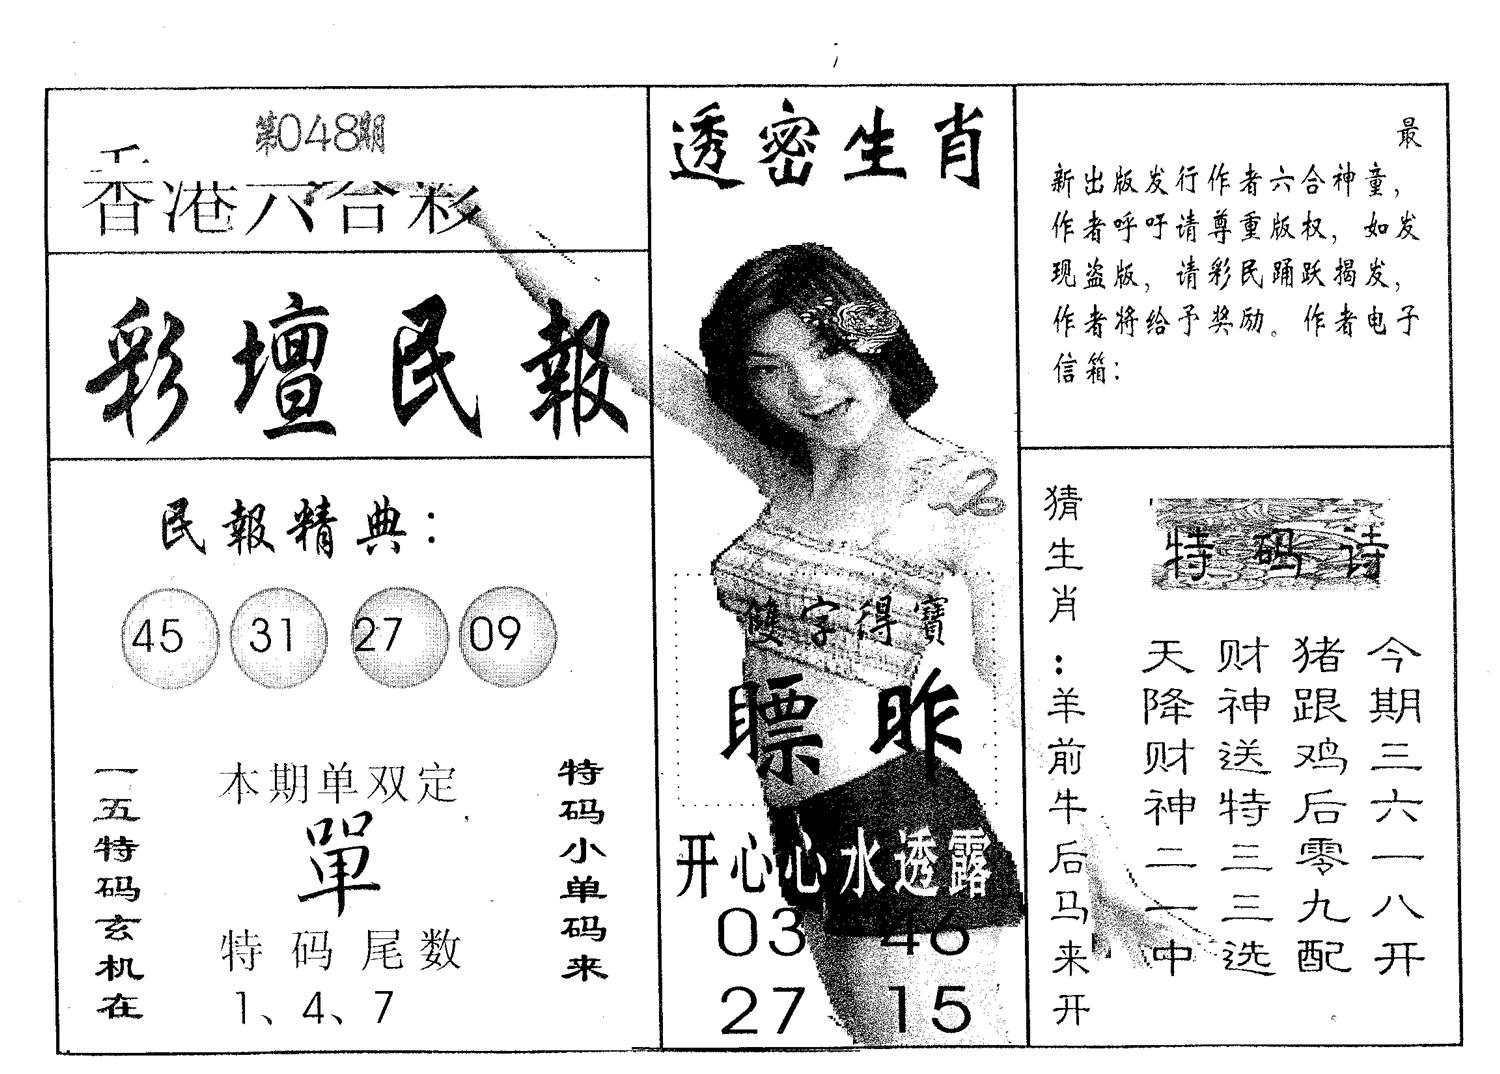 第048期
香港六合彩
彩壇民報
民報精典：
45 31 27 09
一五特码玄机在
本期单双定
單
特码尾数
1、4、7
特码小单码来
透密生肖
雙字得寶
瞟 昨
开心心水透露
03 46
27 15
最
新出版发行作者六合神童，
作者呼吁请尊重版权，如发
现盗版，请彩民踊跃揭发，
作者将给予奖励。作者电子
信箱：
猜生肖：羊前牛后马来开
特码诗
今期三六一八开
猪跟鸡后零九配
财神送特三三选
天降财神二一中